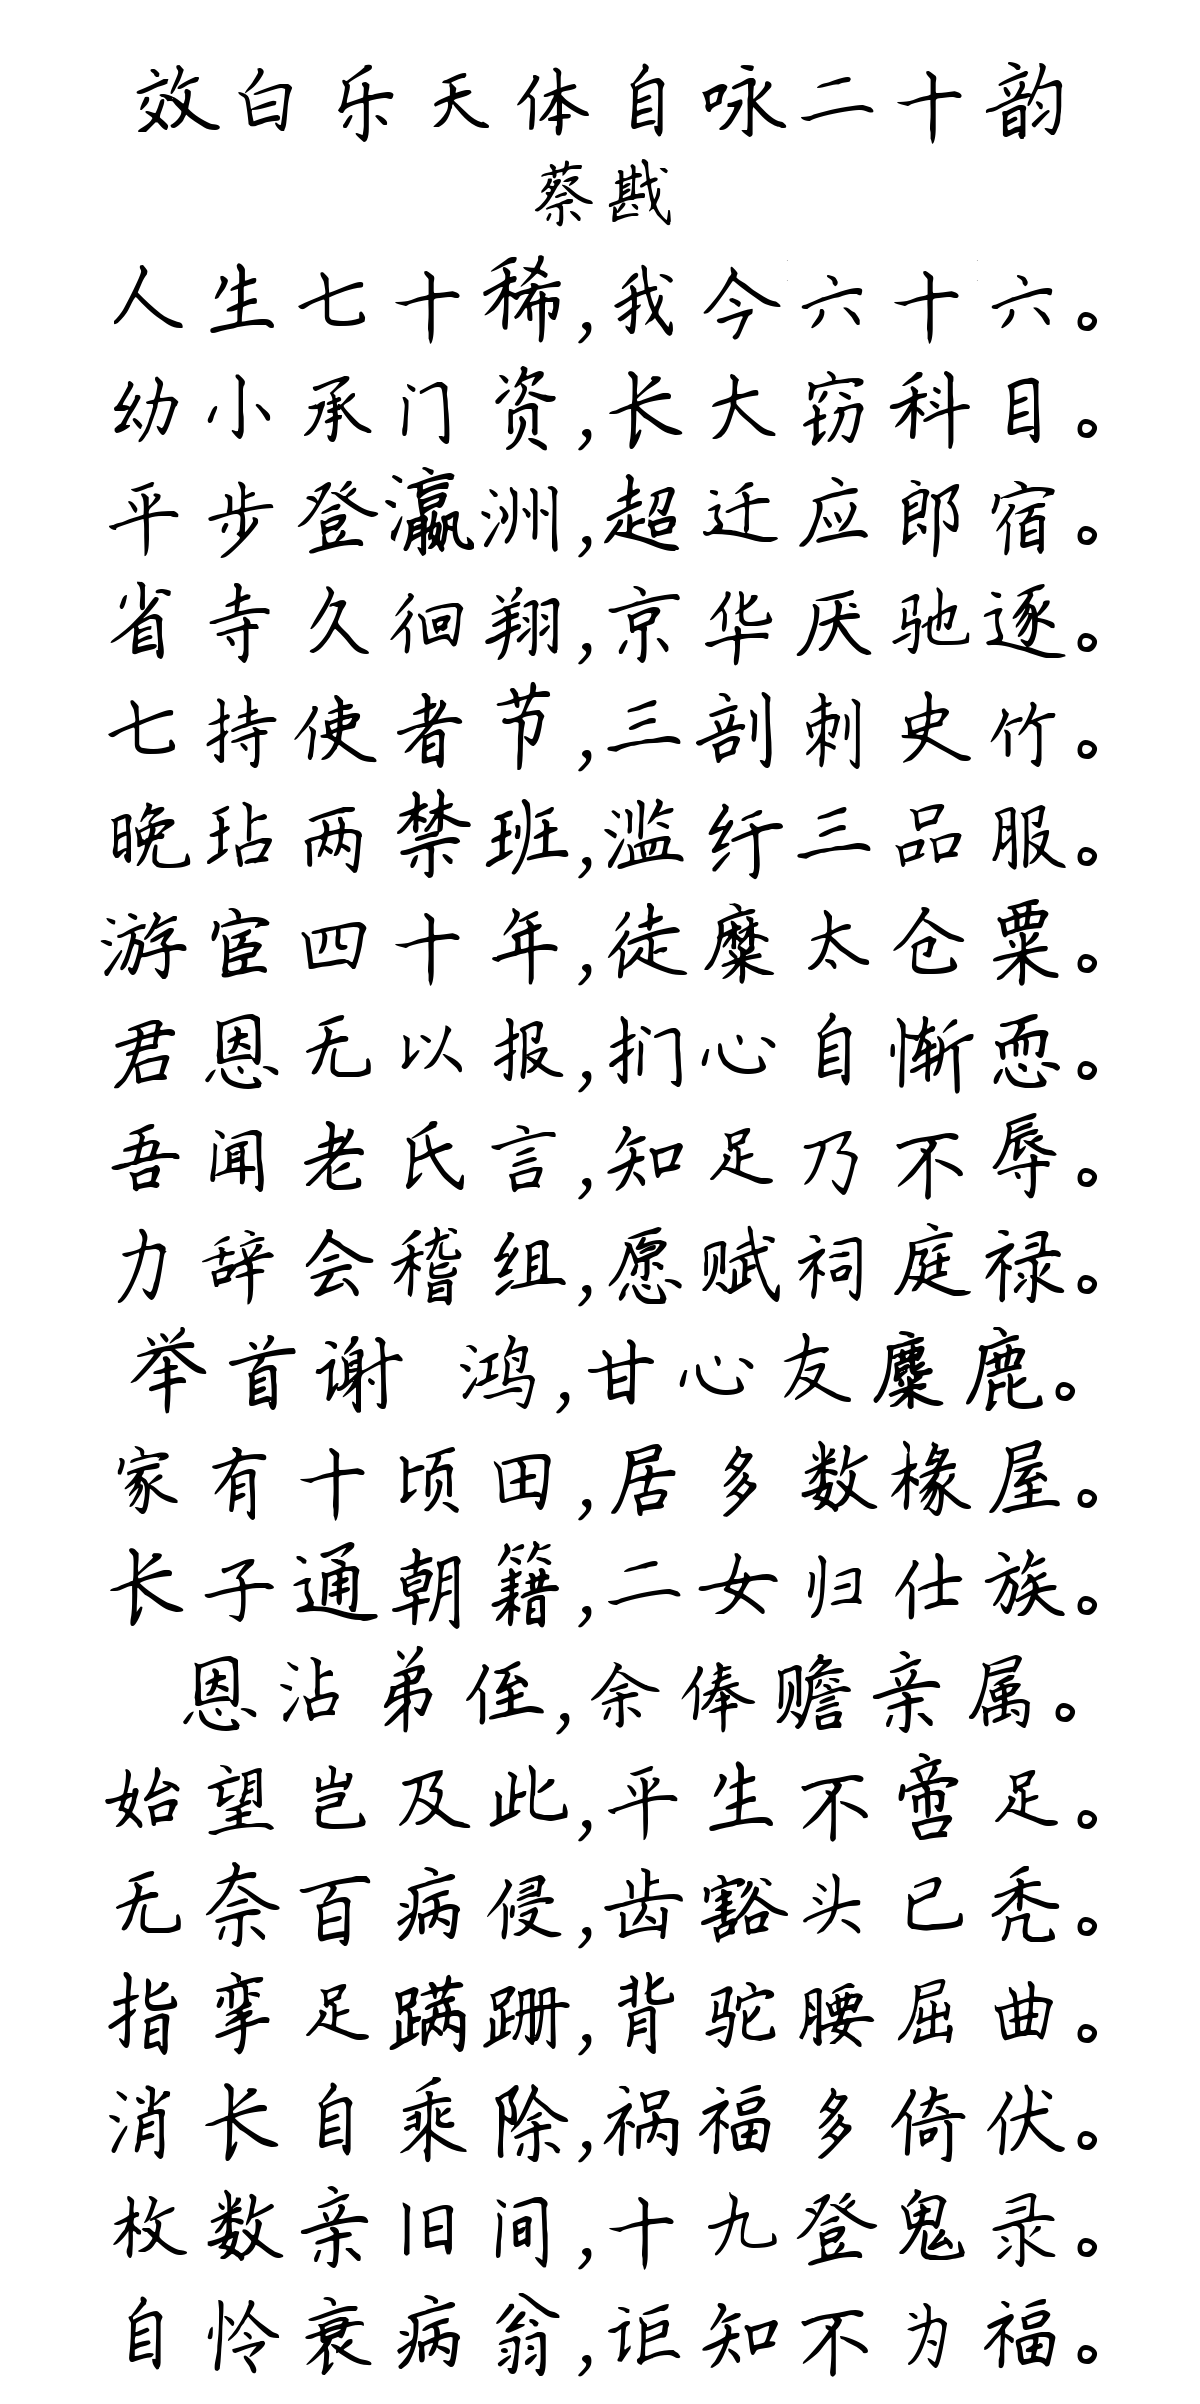 效白乐天体自咏二十韵
蔡戡
人生七十稀,我今六十六。
幼小承门资,长大窃科目。
平步登瀛洲,超迁应郎宿。
省寺久徊翔,京华厌驰逐。
七持使者节,三剖刺史竹。
晚玷两禁班,滥纡三品服。
游宦四十年,徒糜太仓粟。
君恩无以报,扪心自惭恧。
吾闻老氏言,知足乃不辱。
力辞会稽组,愿赋祠庭禄。
举首谢 鸿,甘心友麋鹿。
家有十顷田,居多数椽屋。
长子通朝籍,二女归仕族。
恩沾弟侄,余俸赡亲属。
始望岂及此,平生不啻足。
无奈百病侵,齿豁头已秃。
指挛足蹒跚,背驼腰屈曲。
消长自乘除,祸福多倚伏。
枚数亲旧间,十九登鬼录。
自怜衰病翁,讵知不为福。